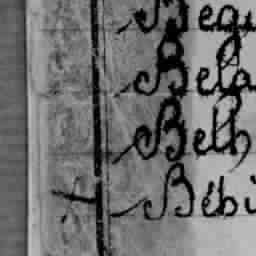 Begu
Bela
Belh
Bebi